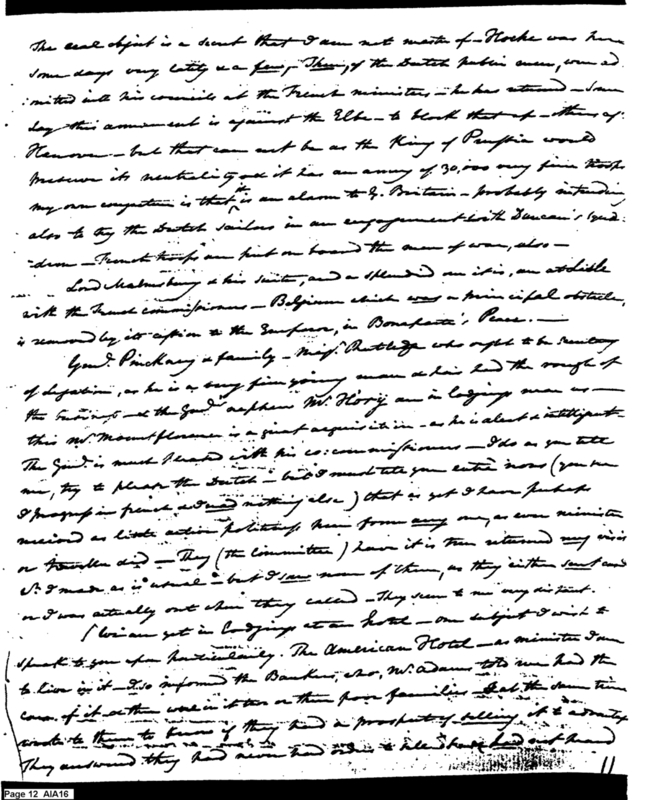 The real object is a secret that I am not master of – Hoche was here
some days very lately & a few, – of the Dutch public men, were ad-
mitted into his councils at the French ministers – he has returned – some
say this armament is against the Elbe – to block that up – others of
Hanover – but that can not be as the King of Prussia would
preserve its neutrality & it has an army of 30,000 very fine troops
my own conjecture is that it is an alarm to G. Britain – probably intending
also to try the Dutch sailors in an engagement with Duncan's squa-
-dron – French troops are put on board the men of war, also –
Lord Malmsbury & his suite, and a splendid one it is, are at Lisle
with the French commissioners – Belgium which was a principal obstacle,
is removed by its cession to the Emperor, in Bonaparte's Peace. –
Genl. Pinckney & family – Majr. Rutledge who ought to be secretary
of Legation, as he is a very fine young man & has had the rough of
the business – & the Genl's nephew Mr. Hory are in lodgings near us –
this Mr. Mountflorence is a great acquisition – as he is alert & intelligent –
The Genl. is much pleased with his co-commissioners – I do as you tell
me, try to please the Dutch – but I must tell you entre nous (you see
I progress in french and nothing else) that as yet I have perhaps
received as little active politeness here from any one, as ever minister
or traveller did – They (the Committee) have it is true returned my visits
wh. I made as is "usual" – but I saw none of them, as they either sent cards
or I was actually out when they called – They seem to me very distant.
We are yet in Lodgings at an hotel – one subject I wish to
speak to you upon particularly. The American Hotel – as minister I am
to live in it – I so informed the Bankers, who, Mr. Adams told me had the
care of it & there were in it two or three poor families – & at the same time
wrote to them to know if they had a prospect of selling it to advantage
They answered they had never had orders to sell & had not heard
11
Page 12 AIA16